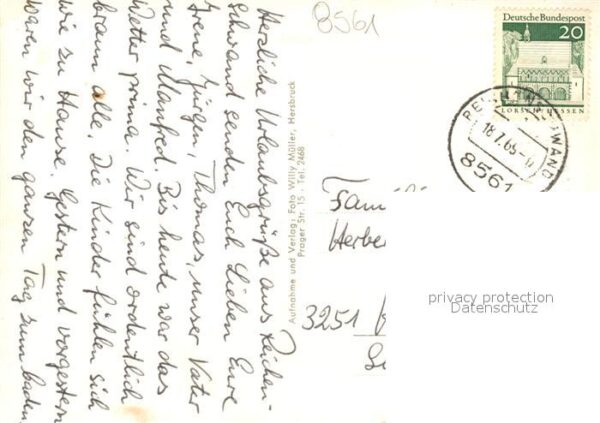 8561
Deutsche Bundespost
20
LORSCH/HESSEN
18.7.68
8561
Herzliche Urlaubsgrüße aus Reichen-
schwand senden Euch Lieben Eure
Irene, Jürgen, Thomas, unser Vater
und Manfred. Bis heute war das
Wetter prima. Wir sind ordentlich
braun alle. Die Kinder fühlen sich
wie zu Hause. Gestern und vorgestern
waren wir den ganzen Tag zum baden.
Aufnahme und Verlag: Foto Willy Müller, Hersbruck
Prager Str. 15 - Tel. 2468
Famili
Herbe
3251
privacy protection
Datenschutz